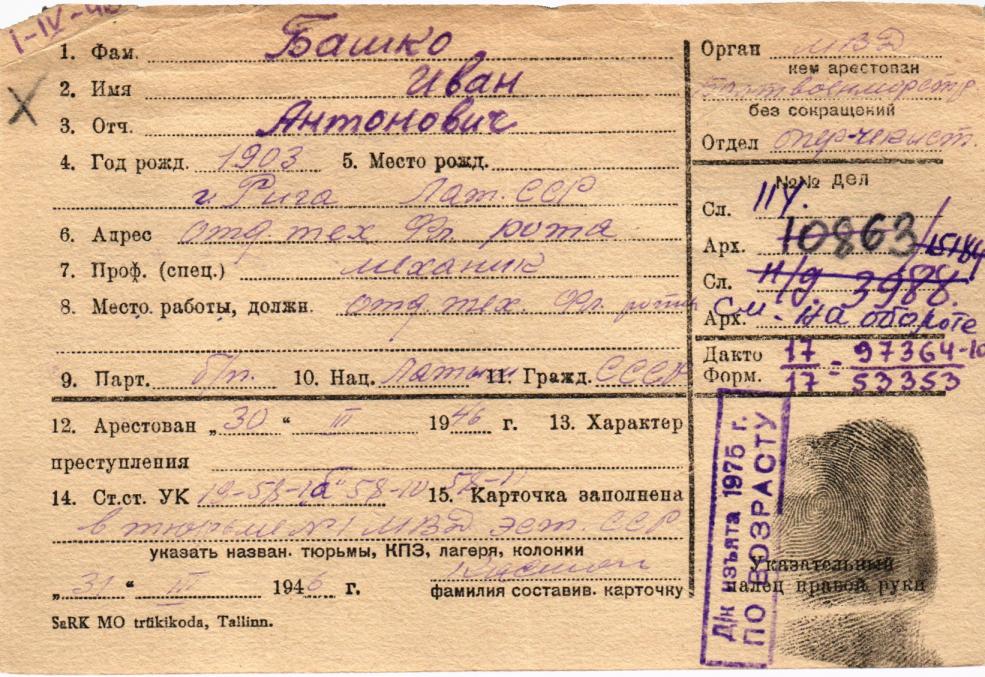 1-IV-46
1. Фам. Башко
2. Имя Иван
3. Отч. Антонович
4. Год рожд. 1903 5. Место рожд.
г. Рига Лат. ССР
6. Адрес отд. тех. фл. рота
7. Проф. (спец.) механик
8. Место работы, должн. отд. тех. фл. рота
9. Парт. б/п. 10. Нац. Латыш 11. Гражд. СССР
12. Арестован „30“ III 1946 г. 13. Характер
преступления
14. Ст.ст. УК 19-58-1а 58-10 58-11 15. Карточка заполнена
в тюрьме №1 МВД Эст. ССР
указать назван. тюрьмы, КПЗ, лагеря, колонии
„31“ III 1946 г.
фамилия составив. карточку
SaRK MO trükikoda, Tallinn.
Орган МВД
кем арестован
без сокращений
Отдел опер-чекист.
№№ дел
Сл. 114.
Арх. 10863 / 15184
Сл. н/д. 3988.
Арх. См. на обороте
Дакто 17 - 97364-10
Форм. 17 - 53353
Д/к изъята 1975 г.
ПО ВОЗРАСТУ
Указательный
палец правой руки